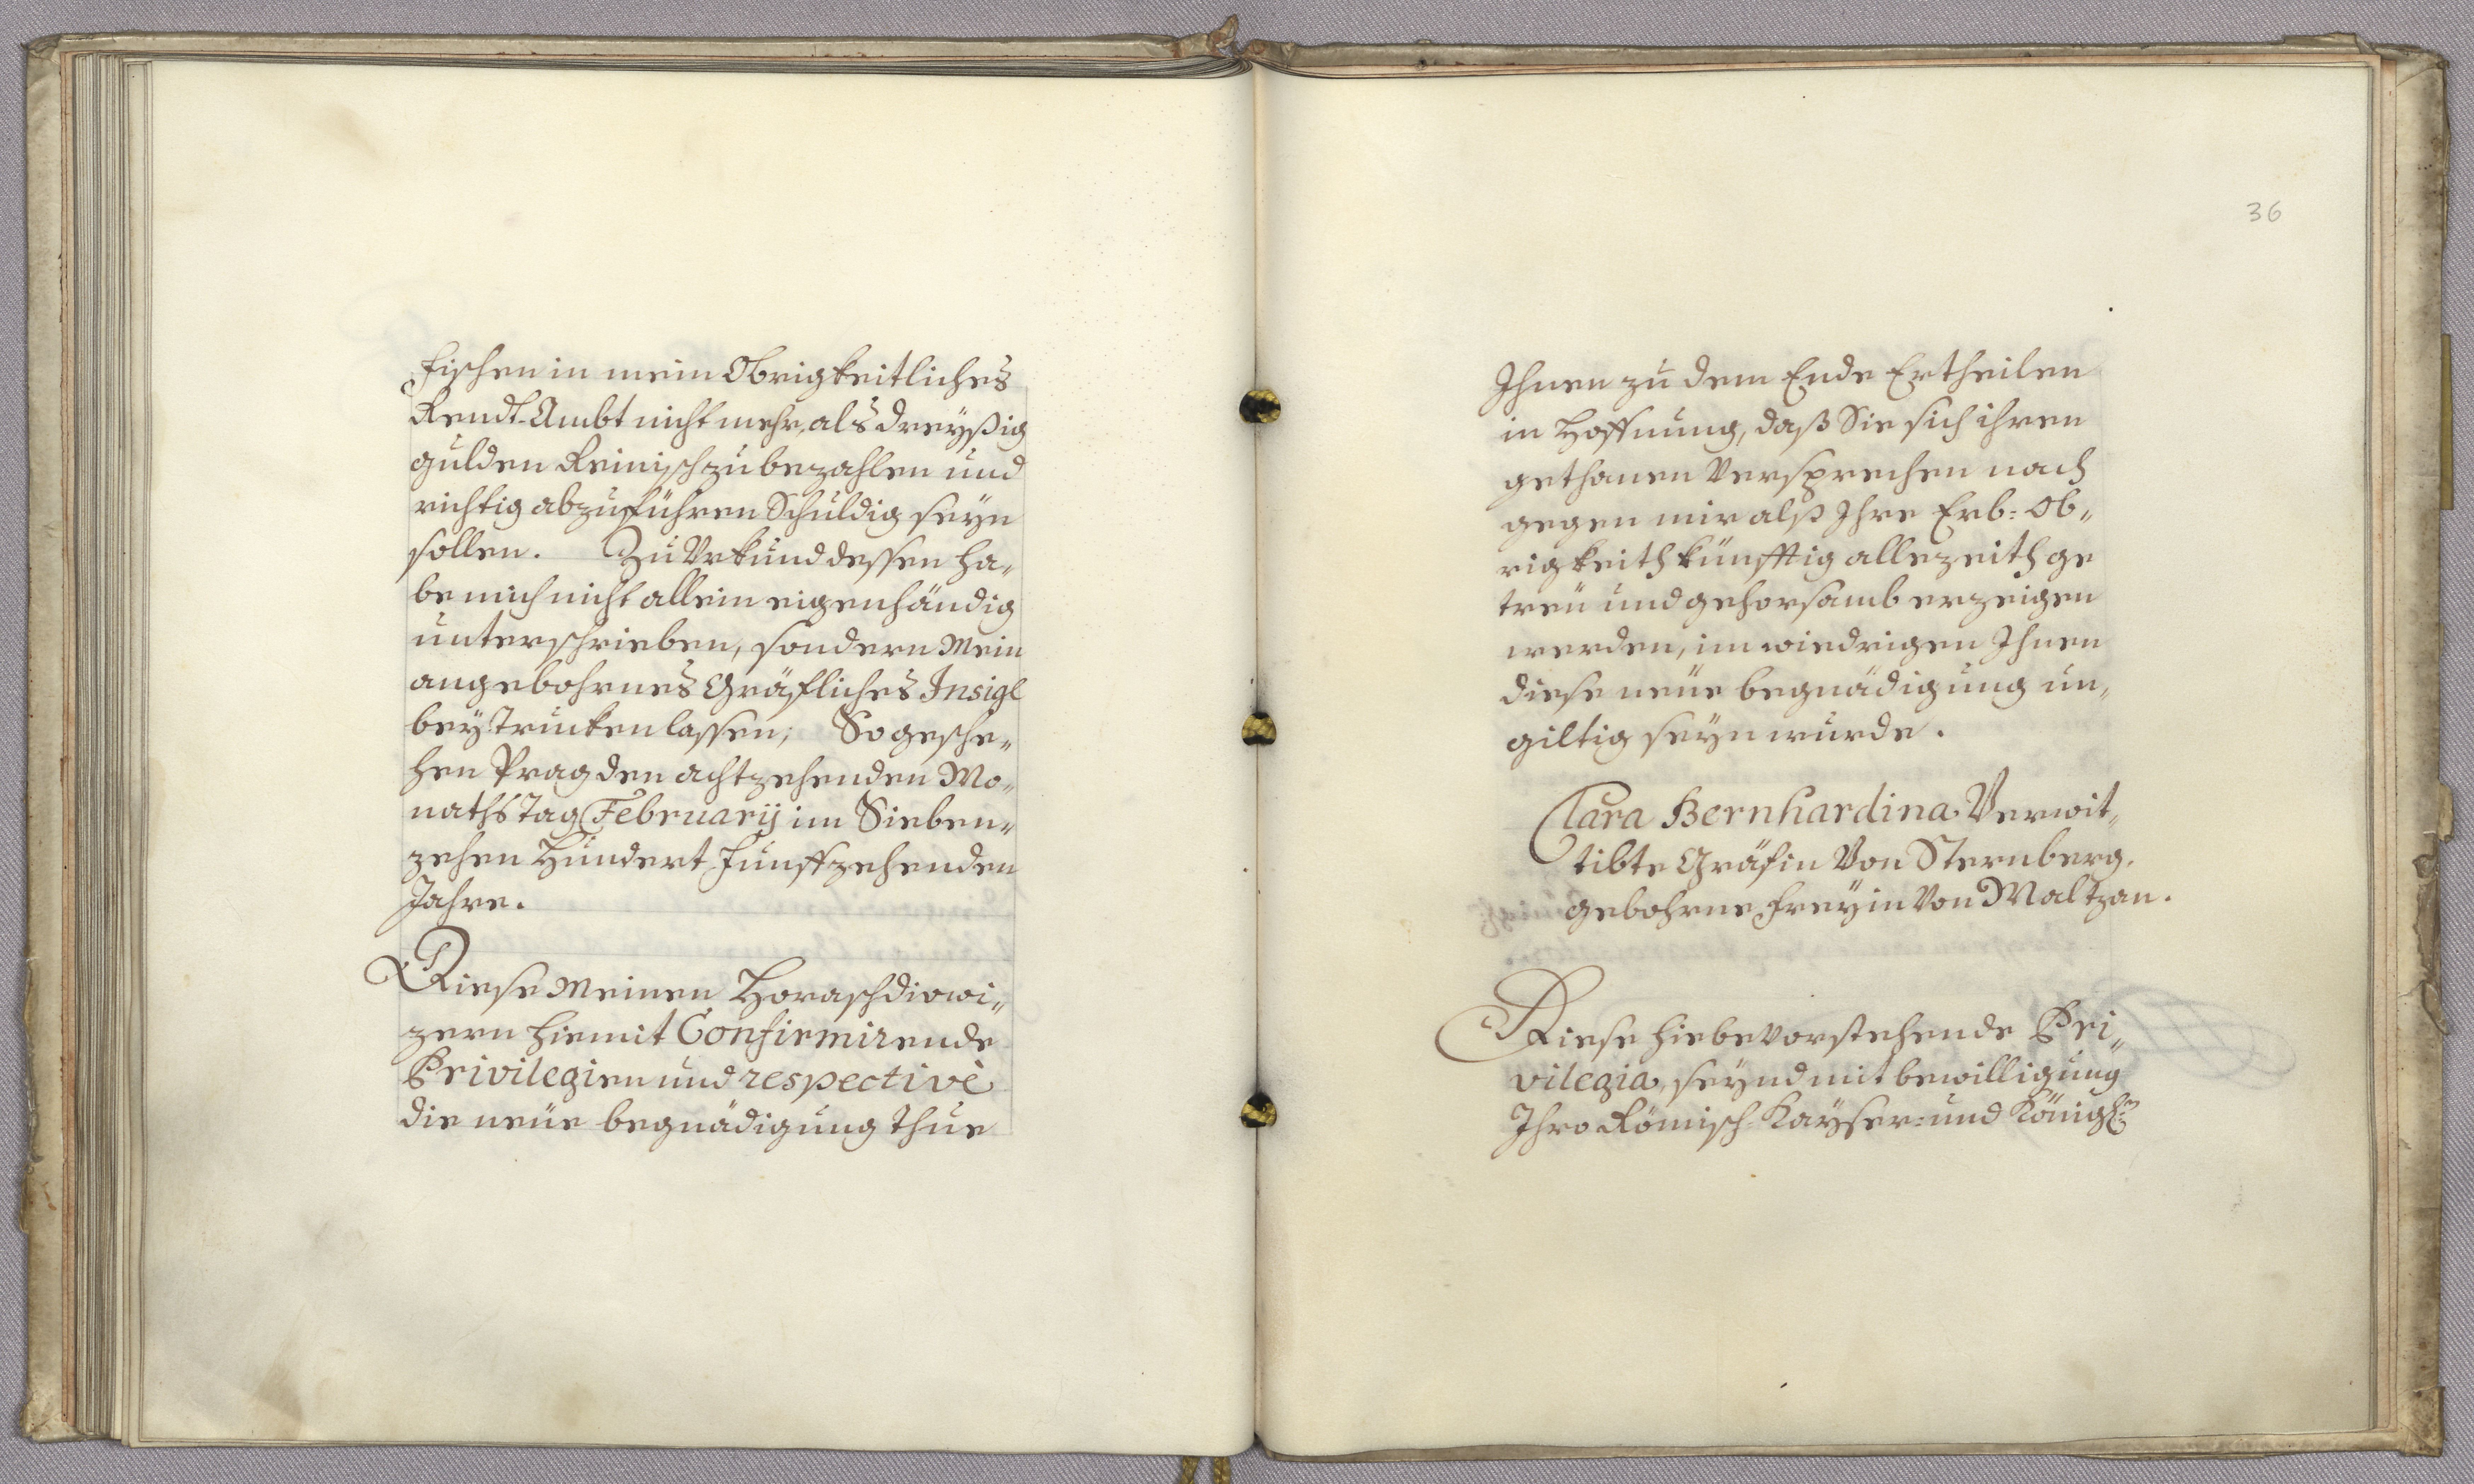 fischen in mein Obrigkeitliches
Rendt-Ambt nicht mehr, als dreyßig
gulden Reinisch zu bezahlen und
richtig abzuführen Schuldig seyn
sollen. Zu Urkund dessen ha„
be mich nicht allein eigenhändig
unterschrieben, sondern Mein
angebohrnes Gräfliches Insigl
beytrucken lassen; So gesche„
hen Prag den achtzehenden Mo„
naths Tag February im Sieben„
zehen Hundert Funffzehenden
Jahre.
Diese Meinen Horaschdiowi„
zern hiemit Confirmirende
Privilegien und respectivè
die neüe begnädigung thue
36
Ihnen zu dem Ende Ertheilen
in Hoffnung, daß Sie sich ihren
gethanen Versprechen nach
gegen mir alß Ihre Erb: Ob„
rigkeith künfftig allezeith ge
treü und gehorsamb erzeigen
werden, im wiedrigen Ihnen
diese neüe begnädigung un„
giltig seyn wurde.
Clara Bernhardina Verwit„
tibte Gräfin Von Sternberg.
gebohrne Freyin Von Maltzan.
Diese hiebevorstehende Pri„
vilegia, seynd mit bewilligung
Ihro Römisch-Kayser: und Königl: